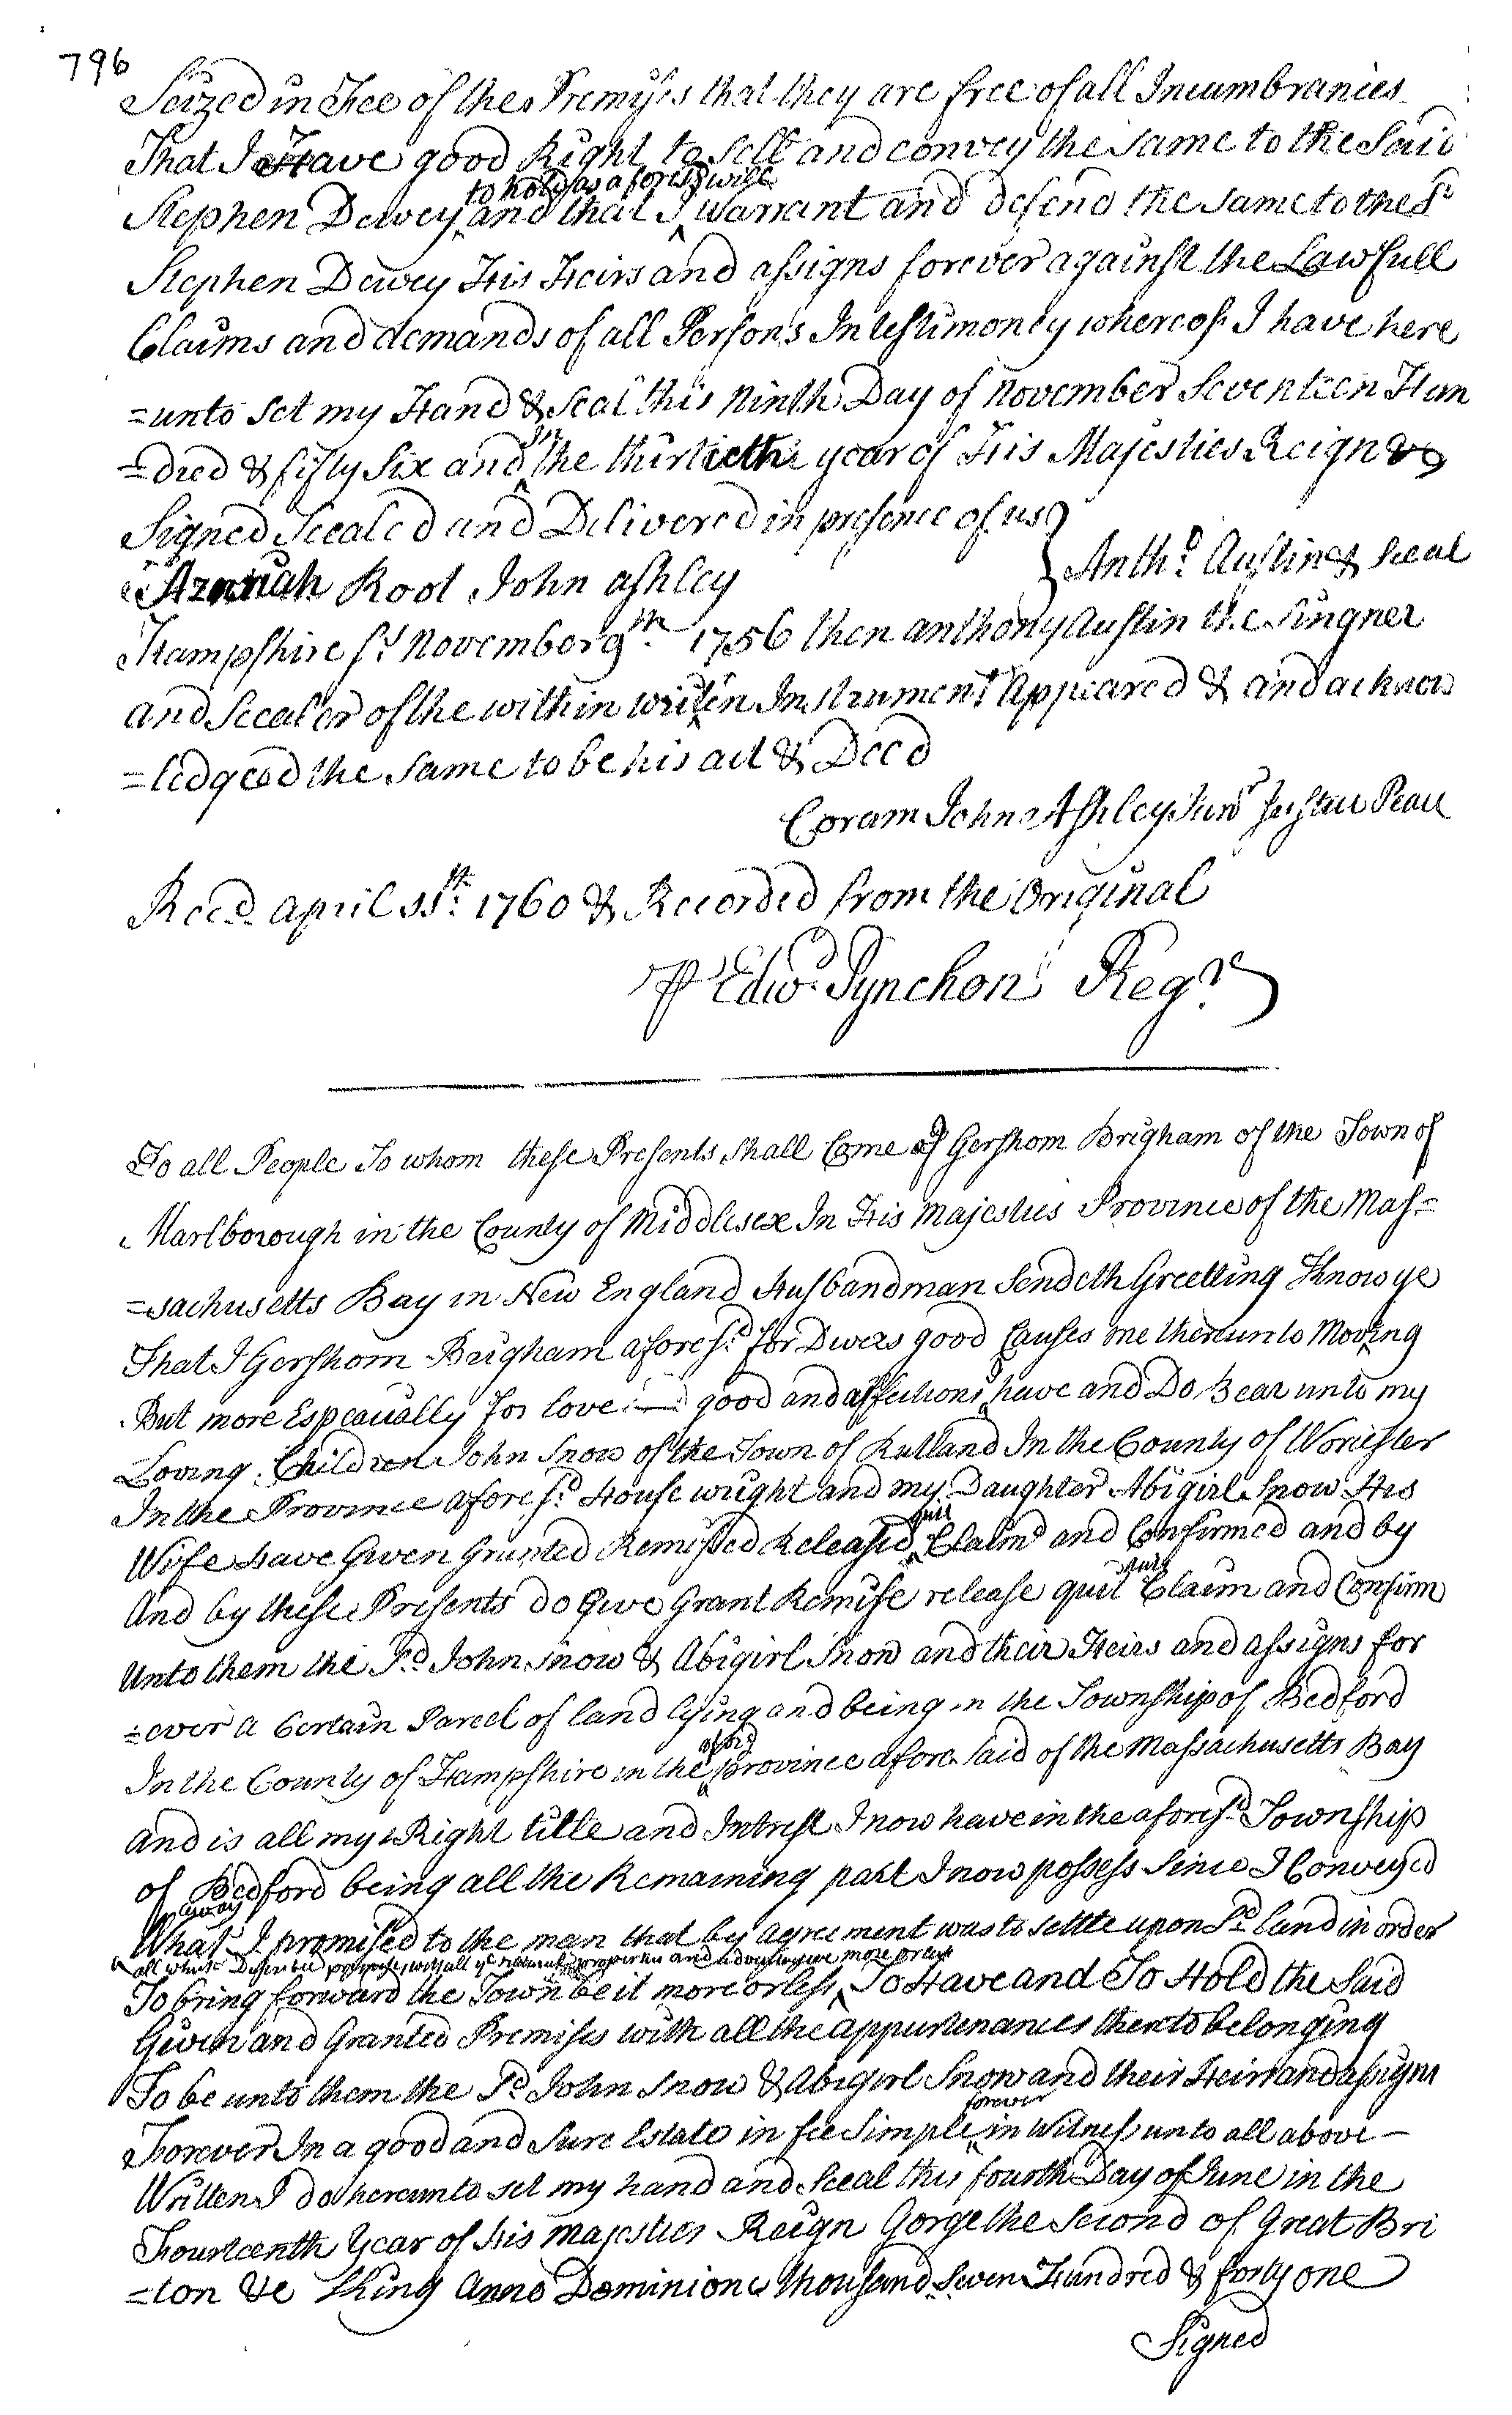 796
Seized in Fee of the Premises that they are free of all Incumbrances
That I Have good Right to Sell and convey the same to the Said
to hold as afores.d will
Stephen Dewey and that I warrant and defend the same to the S.d
Stephen Dewey His Heirs and assigns forever against the Lawfull
Claims and demands of all Persons In testimony whereof I have here
=unto set my Hand & Seal this Ninth Day of November Seventeen Hun
=dred & fifty Six and in the thirtieth year of His Majesties Reign &c
Signed Sealed and Delivered in presence of us
Anth.o Austin & Seal
Azariah Root John Ashley
Hampshire ss November 9th 1756 then anthony Austin the Singner
and Sealer of the within writen Instrument Appeared & and acknow
=ledged the same to be his act & Deed
Coram John Ashley Jun.r Justice Peace
Recd. april 1st: 1760 & Recorded from the Original
P Edw.d Pynchon Reg.r
To all People To whom these Presents shall Come of Gershom Brigham of the Town of
Marlborough in the County of Middlesex In His Majesties Province of the Mas=
=sachusetts Bay in New England Husbandman Sendeth Greetting Know ye
That I Gershom Brigham afores.d for Divers good Causes me thereunto Moving
But more Espeacially for love good and affections have and Do Bear unto my
Loving Children John Snow of the Town of Rutland In the County of Worcester
In the Province afores.d House wright and my Daughter Abigirl Snow His
quit
Wife have Given Granted Remissed Released Claimd and Confirmed and by
And by these Presents do Give Grant Remise release quit Claim and Confirm
Unto them the S.d John Snow & Abigirl Snow and their Heirs and assigns for
=ever a Certain Parcel of land lying and being in the Township of Bedford
In the County of Hampshire in the province afore said of the Massachusetts Bay
and is all my Right title and Intrest I now have in the afores.d Township
of Bedford being all the Remaining part I now possess Since I Conveyed
away
What I promised to the man that by agreement was to settle upon S.d land in order
To bring forward the Town be it more or less To Have and To Hold the Said
Given and Granted Premises with all the appurtenances thereto belonging
To be unto them the S.d John Snow & Abigirl Snow and their Heirs and assigns
forever
Forever In a good and Sure Estate in fee Simple in Witness unto all above
Written I do hereunto set my hand and Seal this fourth Day of June in the
Fourteenth Year of His Majesties Reign Gorge the Second of Great Bri
=ton &c King Anno Domini one thousand Seven Hundred & forty one
Signed